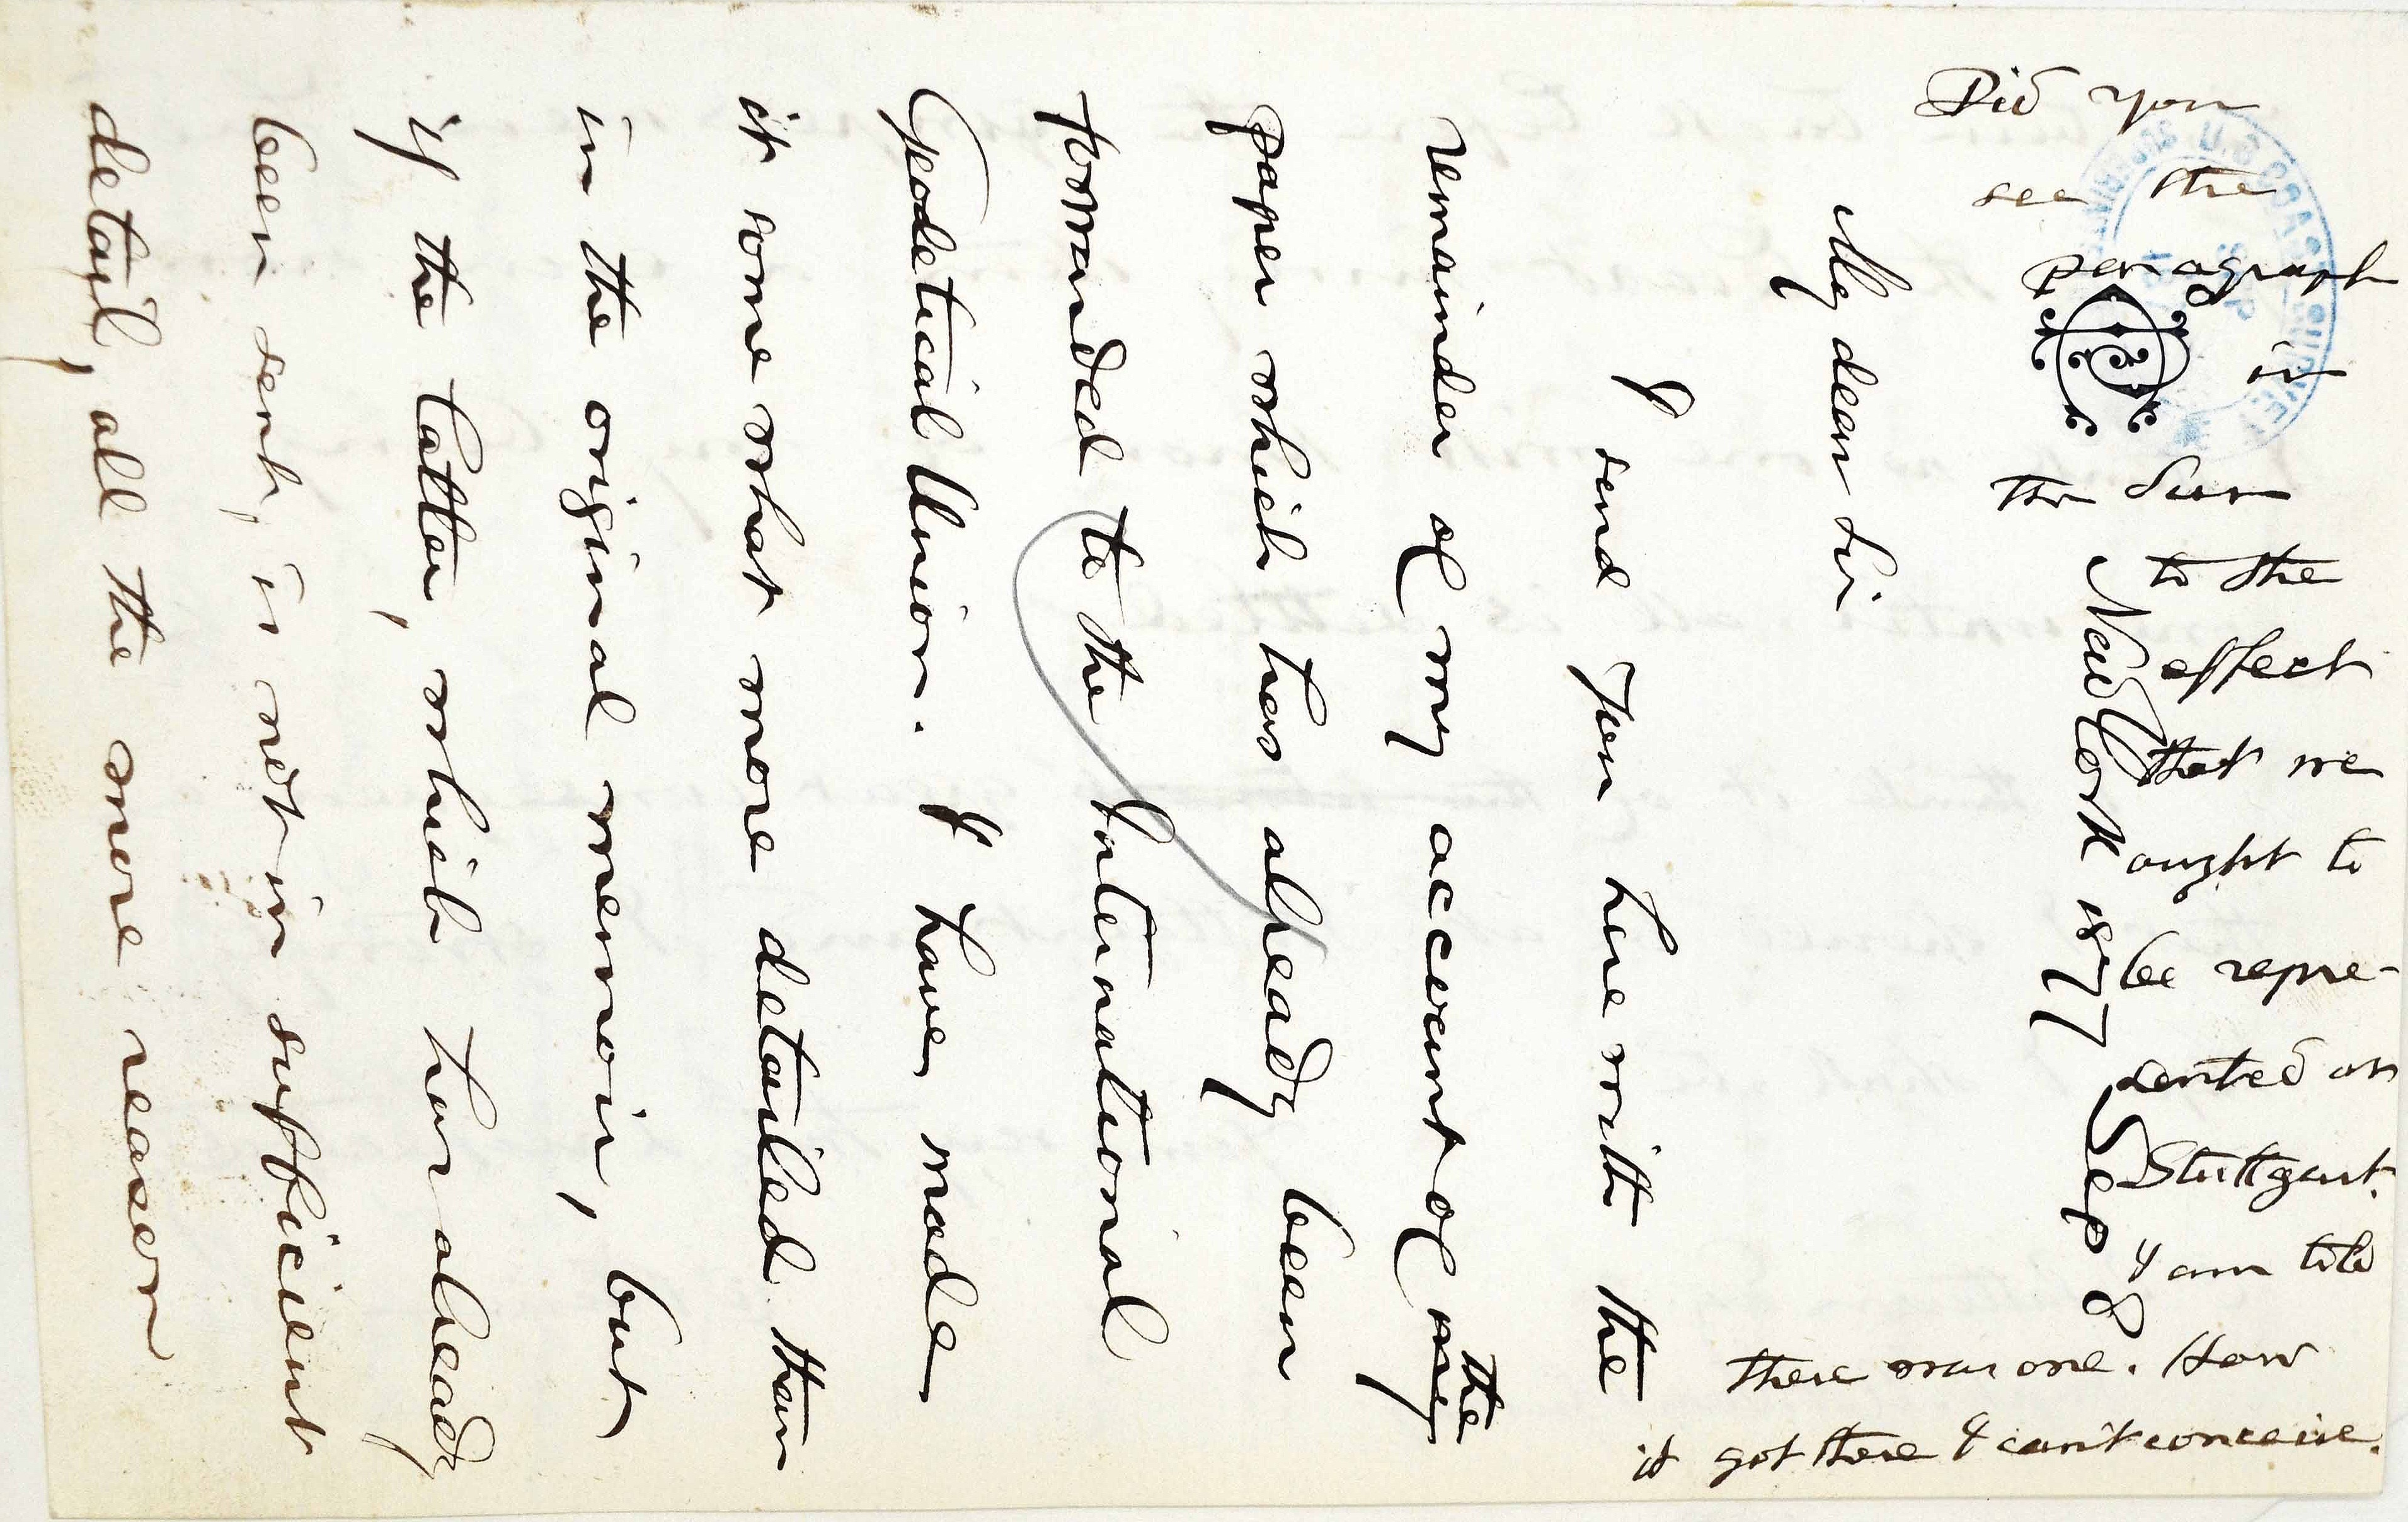 New York 1877 Sep 8
My dear Sir
I send you herewith the
remainder of my account of my the
paper which has already been
forwarded to the International
Geodetical Union. I have made
it somewhat more detailed than
in the original memoir, but
if the latter, which has already
been sent, is not in sufficient
detail, all the more reason
Did you
see the
paragraph
in
the Sun
to the
effect
that we
ought to
be repre-
sented at
Stuttgart.
I am told
there was one. How
it got there I can't conceive.
U.S. COAST SURVEY